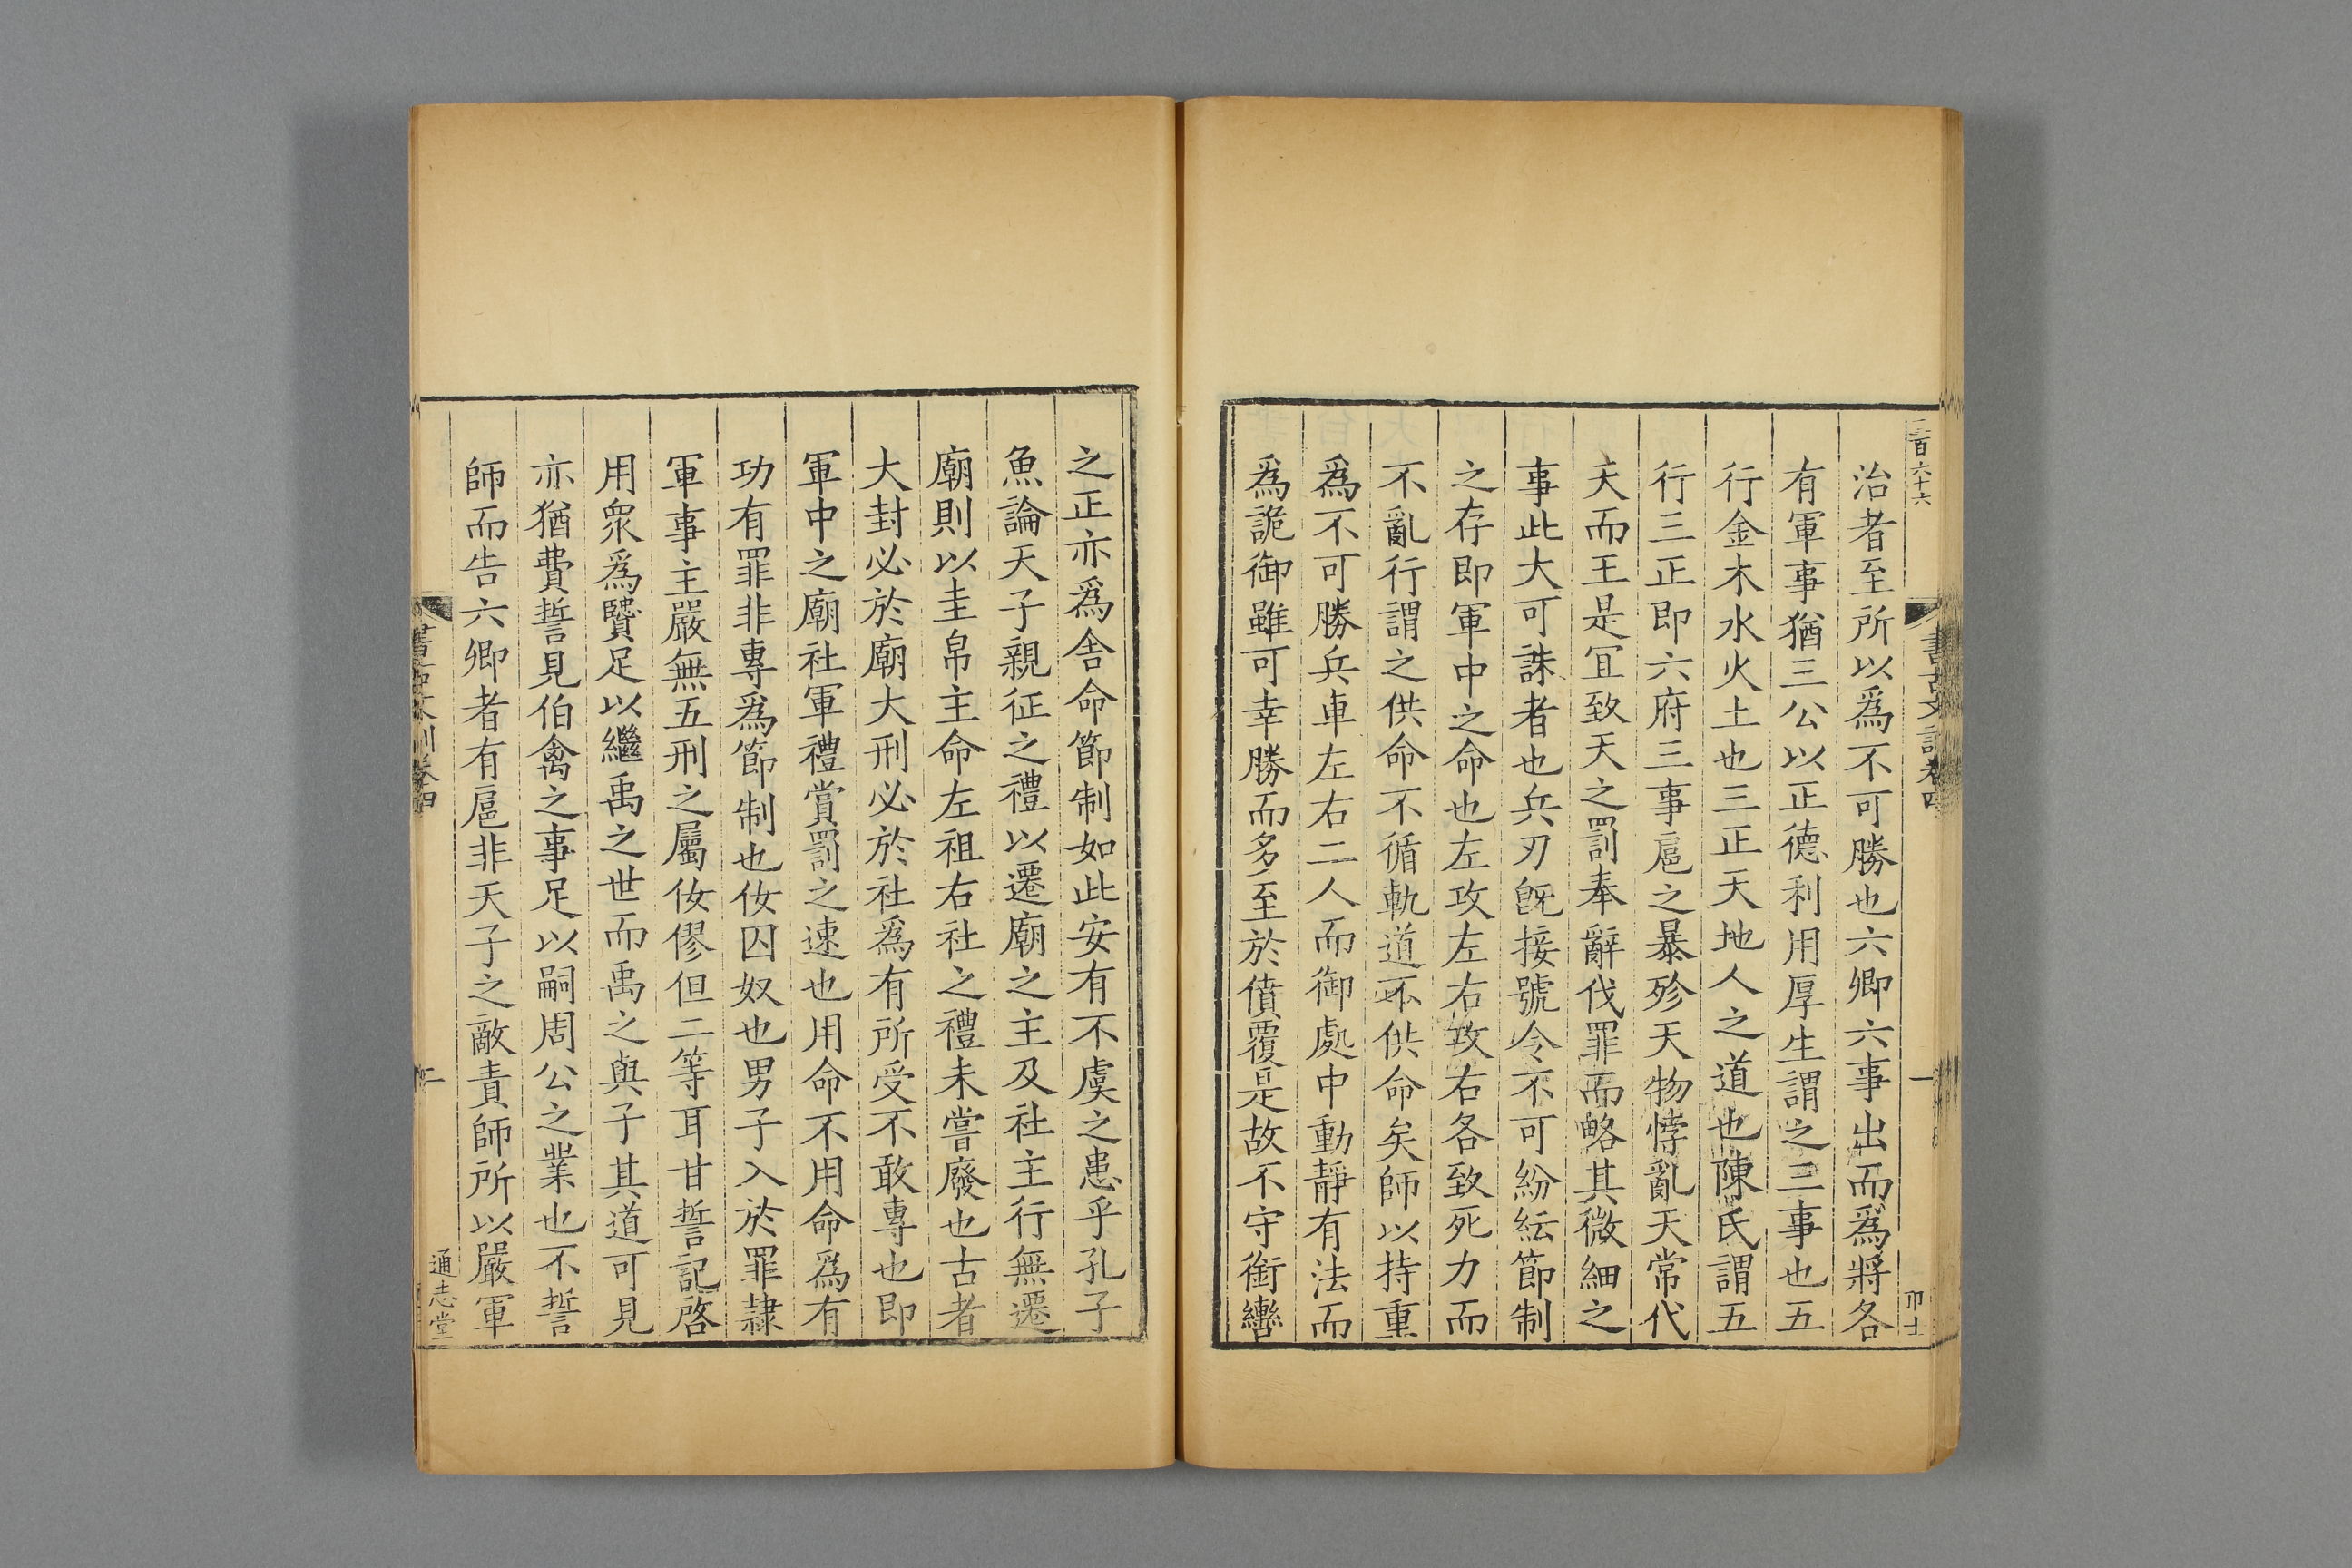 三百六十六
書古文訓卷四
一
治者至所以爲不可勝也六卿六事出而爲將各
有軍事猶三公以正德利用厚生謂之三事也五
行金木水火土也三正天地人之道也陳氏謂五
行三正即六府三事扈之暴殄天物悖亂天常代
天而王是宜致天之罰奉辭伐罪而略其微細之
事此大可誅者也兵刃旣接號令不可紛紜節制
之存即軍中之命也左攻左右攻右各致死力而
不亂行謂之供命不循軌道不供命矣師以持重
爲不可勝兵車左右二人而御處中動靜有法而
爲詭御雖可幸勝而多至於僨覆是故不守銜轡
之正亦爲舍命節制如此安有不虞之患乎孔子
魚論天子親征之禮以遷廟之主及社主行無遷
廟則以圭帛主命左祖右社之禮未嘗廢也古者
大封必於廟大刑必於社爲有所受不敢專也即
軍中之廟社軍禮賞罰之速也用命不用命爲有
功有罪非專爲節制也伮囚奴也男子入於罪隷
軍事主嚴無五刑之屬伮僇但二等耳甘誓記啓
用衆爲賢足以繼禹之世而禹之與子其道可見
亦猶費誓見伯禽之事足以嗣周公之業也不誓
師而告六卿者有扈非天子之敵責師所以嚴軍
書古文訓卷四
二
通志堂